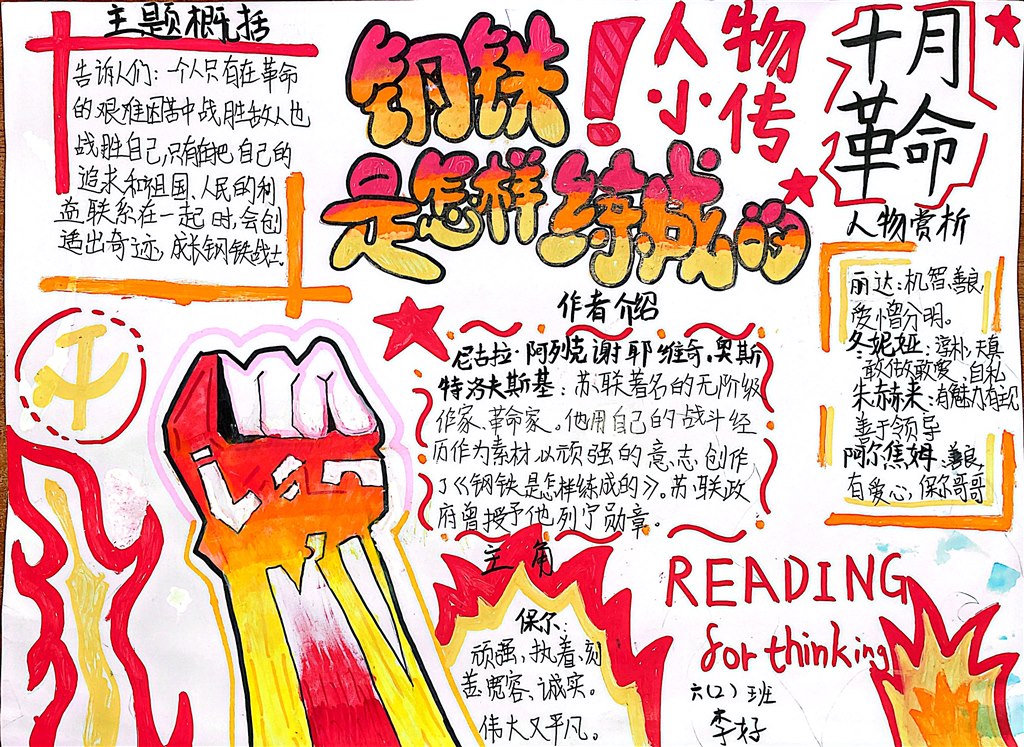 主题概括
告诉人们：一个人只有在革命
的艰难困苦中战胜敌人也
战胜自己，只有在把自己的
追求和祖国、人民的利
益联系在一起时，会创
造出奇迹，成长钢铁战士。
钢铁！
是怎样练成的
人物
小传
十月
革命
人物赏析
丽达：机智、善良，
爱憎分明。
冬妮娅：淳朴、天真
敢做敢爱、自私
朱赫来：有魅力
善于领导
阿尔焦姆：善良，
有爱心，保尔哥哥
作者介绍
尼古拉·阿列克谢耶维奇·奥斯
特洛夫斯基：苏联著名的无阶级
作家、革命家。他用自己的战斗经
历作为素材以顽强的意志创作
了《钢铁是怎样练成的》。苏联政
府曾授予他列宁勋章。
主角
保尔：
顽强、执着、刻
善宽容、诚实。
伟大又平凡。
READING
for thinking
六（2）班
李好